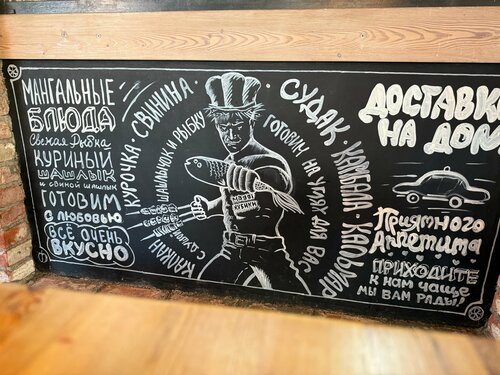 МАНГАЛЬНЫЕ
БЛЮДА
Свежая Рыбка
КУРИНЫЙ
ШАШЛЫК
и свиной шашлык
ГОТОВИМ
С ЛЮБОВЬЮ
ВСЁ ОЧЕНЬ
ВКУСНО
КУРОЧКА · СВИНИНА · СУДАК · КАМБАЛА · КАЛЬМАР
КАЛКАН
ШАШЛЫЧОК И РЫБКУ ГОТОВИМ НА УГЛЯХ ДЛЯ ВАС
С ДУШОЙ
ДОСТАВКА
НА ДОМ
Приятного
Аппетита
ПРИХОДИТЕ
К НАМ ЧАЩЕ
МЫ ВАМ РАДЫ!